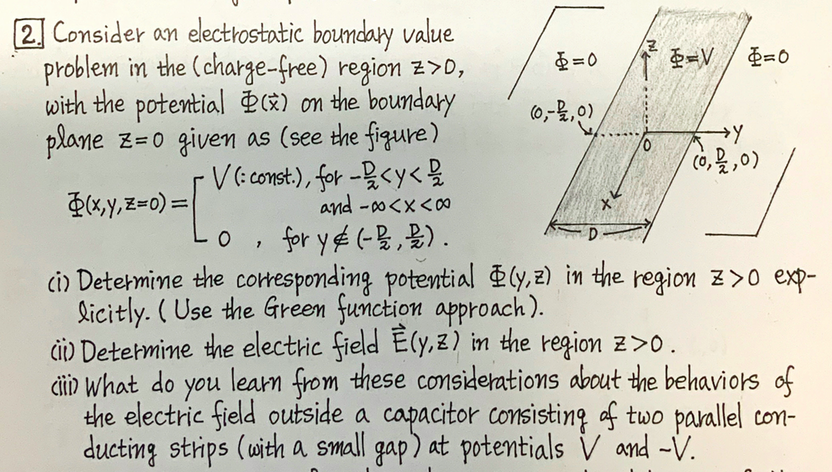 2. Consider an electrostatic boundary value
problem in the (charge-free) region z>0,
with the potential Φ(x⃗) on the boundary
plane z=0 given as (see the figure)
Φ(x,y,z=0) = { V (: const.), for -D/2<y<D/2
and -∞<x<∞
0 , for y∉(-D/2, D/2).
Φ=0
z
Φ=V
Φ=0
(0,-D/2,0)
0
y
(0,D/2,0)
x
D
(i) Determine the corresponding potential Φ(y,z) in the region z>0 exp-
licitly. (Use the Green function approach).
(ii) Determine the electric field E⃗(y,z) in the region z>0.
(iii) What do you learn from these considerations about the behaviors of
the electric field outside a capacitor consisting of two parallel con-
ducting strips (with a small gap) at potentials V and -V.